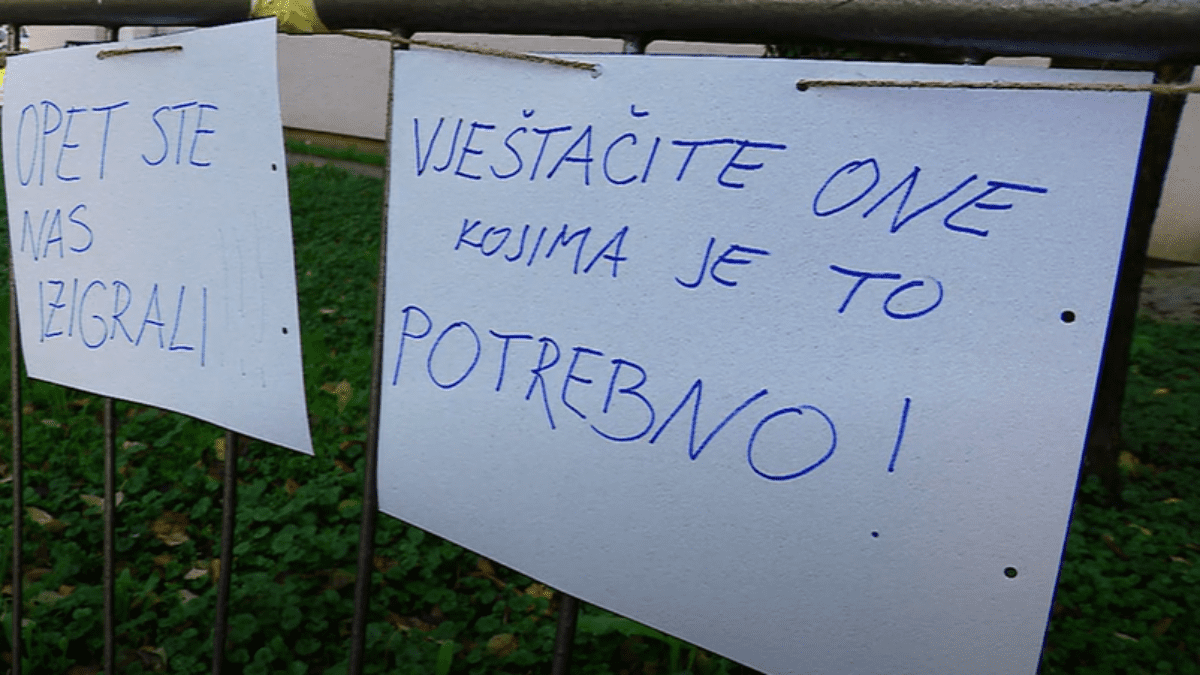 OPET STE
NAS
IZIGRALI
VJEŠTAČITE ONE
KOJIMA JE TO
POTREBNO!